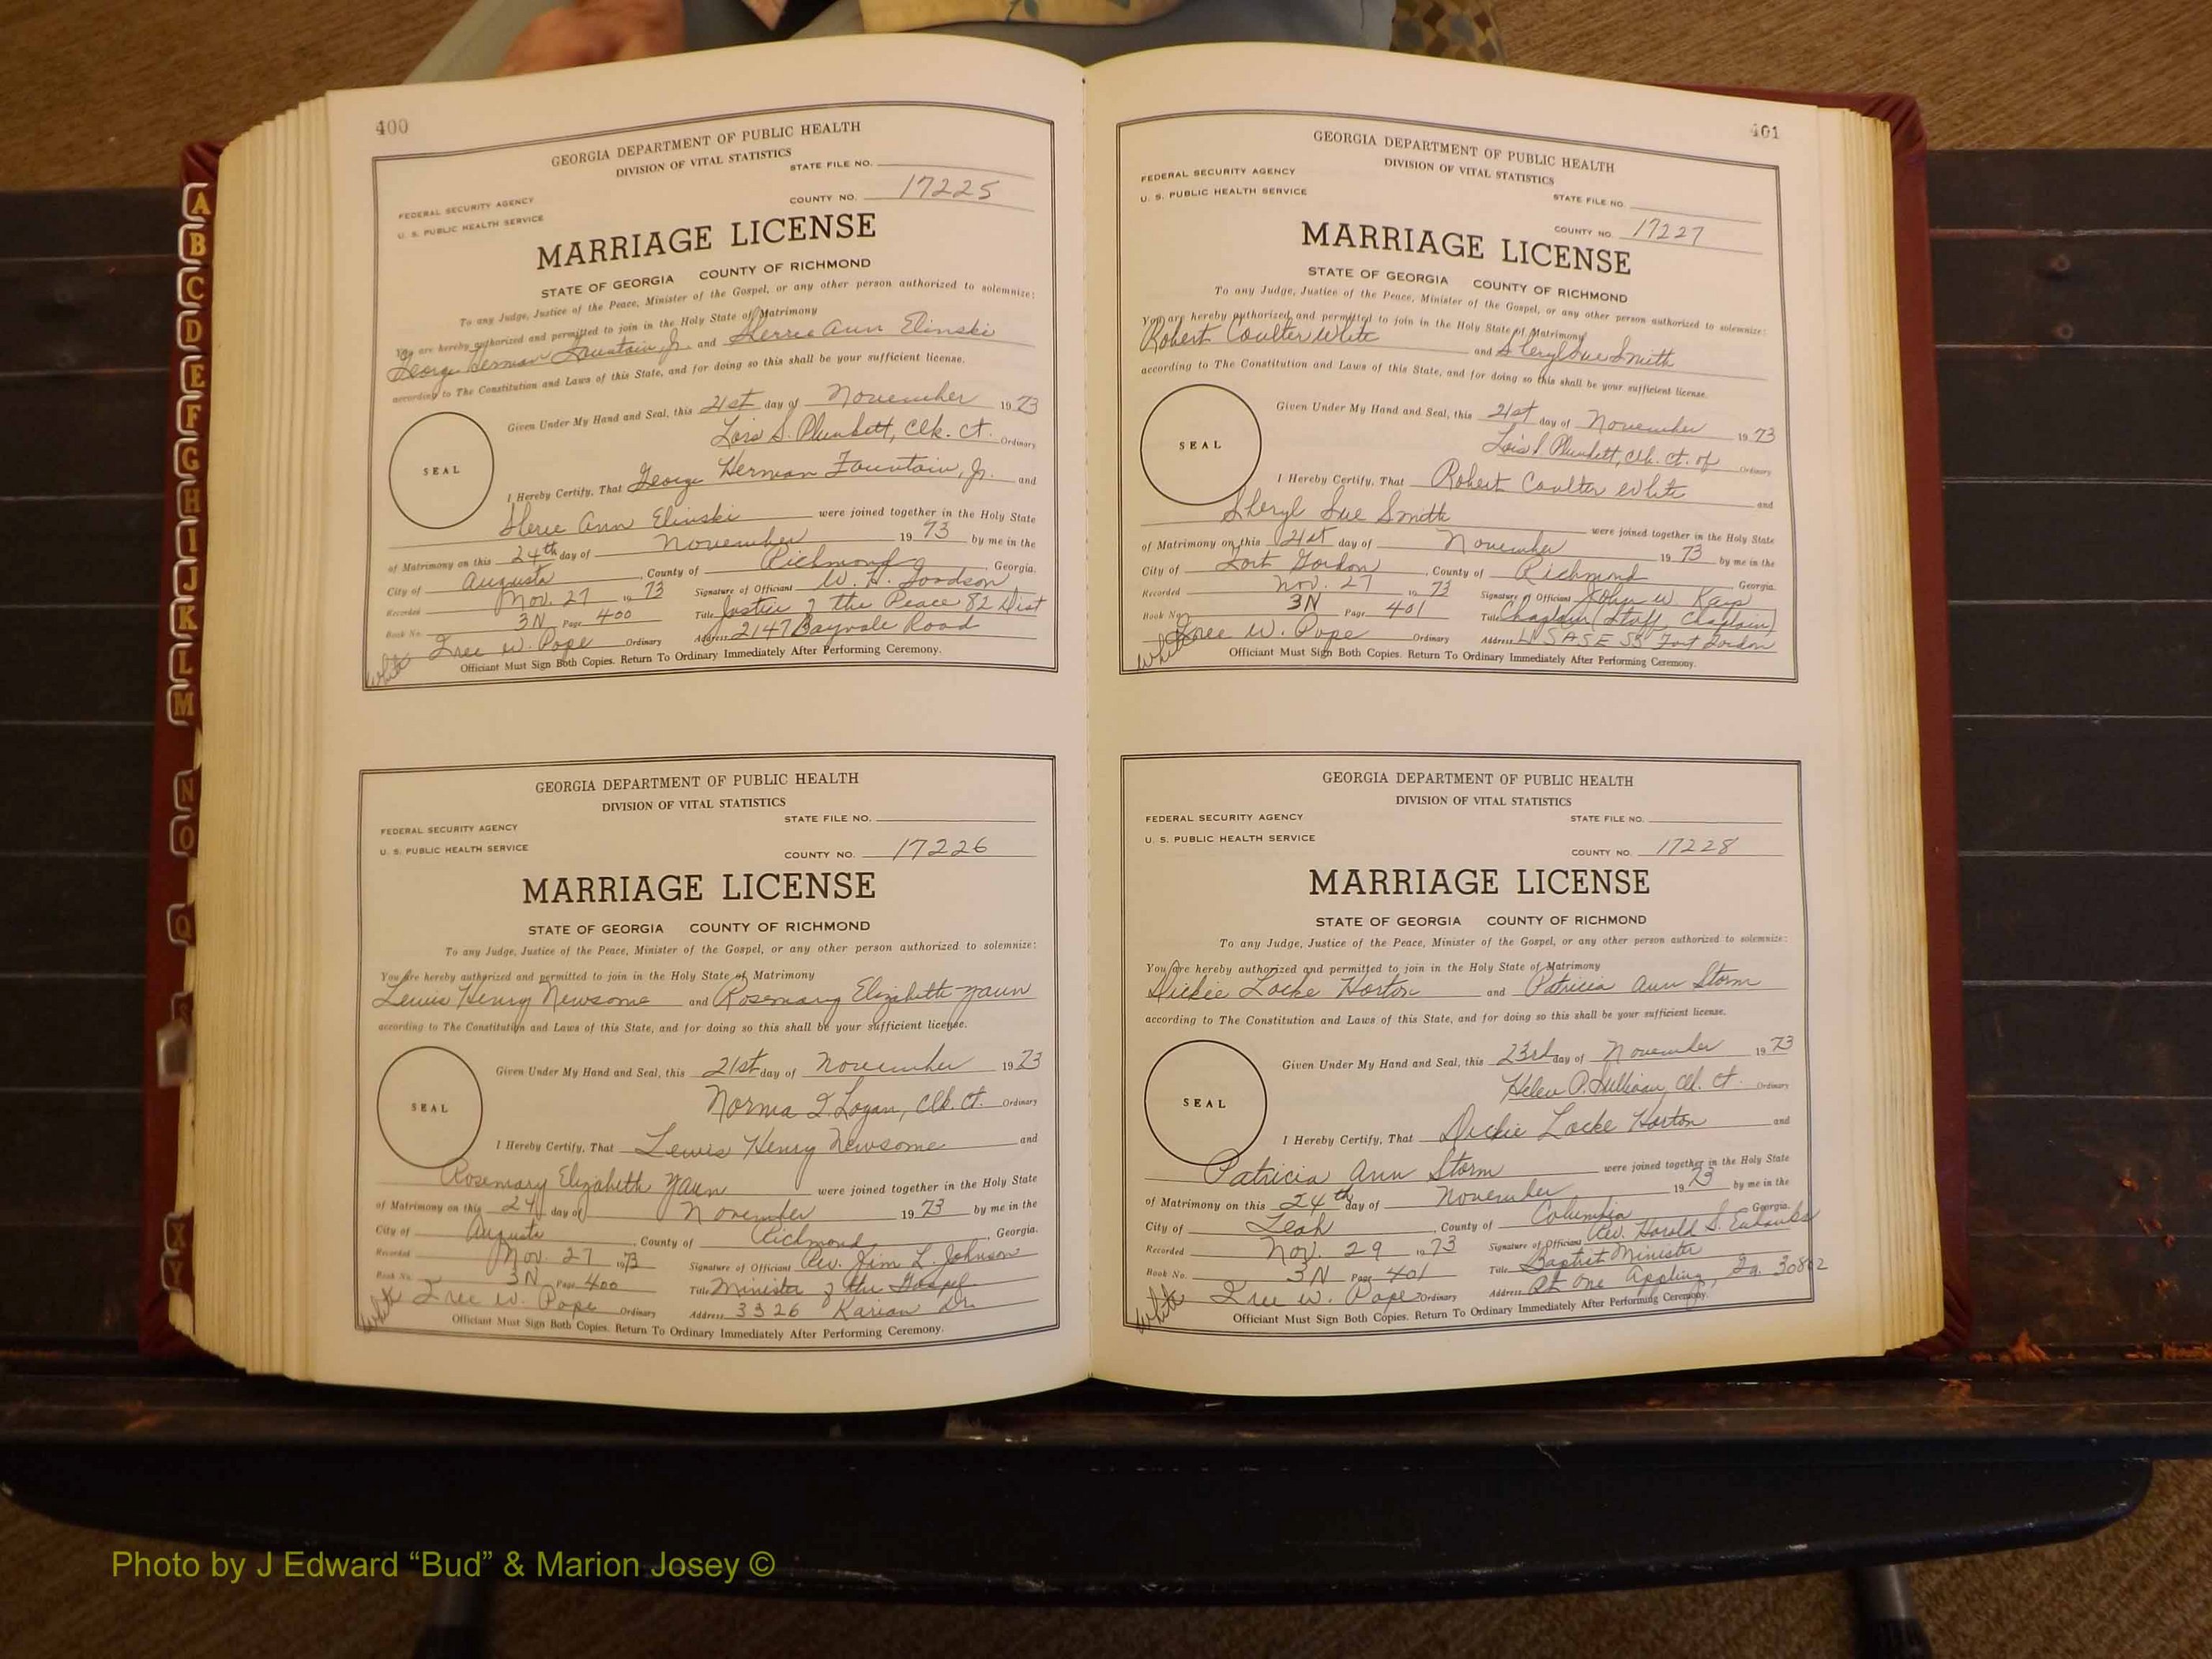 A
B
C
D
E
F
G
H
I
J
K
L
M
N
O
Q
S
X
Y
400
GEORGIA DEPARTMENT OF PUBLIC HEALTH
DIVISION OF VITAL STATISTICS
STATE FILE NO.
FEDERAL SECURITY AGENCY
U. S. PUBLIC HEALTH SERVICE
COUNTY NO. 17225
MARRIAGE LICENSE
STATE OF GEORGIA COUNTY OF RICHMOND
To any Judge, Justice of the Peace, Minister of the Gospel, or any other person authorized to solemnize:
You are hereby authorized and permitted to join in the Holy State of Matrimony
George Herman Fountain, Jr. and Sherrie Ann Elinski
according to The Constitution and Laws of this State, and for doing so this shall be your sufficient license.
Given Under My Hand and Seal, this 21st day of November 1973
Lois S. Plunkett, Clk. Ct. Ordinary
SEAL
I Hereby Certify, That George Herman Fountain, Jr. and
Sherie Ann Elinski were joined together in the Holy State
of Matrimony on this 24th day of November 1973 by me in the
City of Augusta, County of Richmond, Georgia.
Recorded Nov. 27 1973 Signature of Officiant W. H. Goodson
Book No. 3N Page 400 Title Justice of the Peace 82 Dist
Tree W. Pope Ordinary Address 2147 Bayvale Road
White Officiant Must Sign Both Copies. Return To Ordinary Immediately After Performing Ceremony.
GEORGIA DEPARTMENT OF PUBLIC HEALTH
DIVISION OF VITAL STATISTICS
STATE FILE NO.
FEDERAL SECURITY AGENCY
U. S. PUBLIC HEALTH SERVICE
COUNTY NO. 17226
MARRIAGE LICENSE
STATE OF GEORGIA COUNTY OF RICHMOND
To any Judge, Justice of the Peace, Minister of the Gospel, or any other person authorized to solemnize:
You are hereby authorized and permitted to join in the Holy State of Matrimony
Lewis Henry Newsome and Rosemary Elizabeth Yaun
according to The Constitution and Laws of this State, and for doing so this shall be your sufficient license.
Given Under My Hand and Seal, this 21st day of November 1973
Norma I. Logan, Clk. Ct. Ordinary
SEAL
I Hereby Certify, That Lewis Henry Newsome and
Rosemary Elizabeth Yaun were joined together in the Holy State
of Matrimony on this 24 day of November 1973 by me in the
City of Augusta, County of Richmond, Georgia.
Recorded Nov. 27 1973 Signature of Officiant Rev. Jim L. Johnson
Book No. 3N Page 400 Title Minister of the Gospel
Tree W. Pope Ordinary Address 3326 Karian Dr.
White Officiant Must Sign Both Copies. Return To Ordinary Immediately After Performing Ceremony.
401
GEORGIA DEPARTMENT OF PUBLIC HEALTH
DIVISION OF VITAL STATISTICS
FEDERAL SECURITY AGENCY
U. S. PUBLIC HEALTH SERVICE
STATE FILE NO.
COUNTY NO. 17227
MARRIAGE LICENSE
STATE OF GEORGIA COUNTY OF RICHMOND
To any Judge, Justice of the Peace, Minister of the Gospel, or any other person authorized to solemnize:
You are hereby authorized and permitted to join in the Holy State of Matrimony
Robert Coulter White and Sheryl Sue Smith
according to The Constitution and Laws of this State, and for doing so this shall be your sufficient license.
Given Under My Hand and Seal, this 21st day of November 1973
Lois S. Plunkett, Clk. Ct. of Ordinary
SEAL
I Hereby Certify, That Robert Coulter White and
Sheryl Sue Smith were joined together in the Holy State
of Matrimony on this 21st day of November 1973 by me in the
City of Fort Gordon, County of Richmond Georgia.
Recorded Nov. 27 1973 Signature of Officiant John W.
Book No. 3N Page 401 Title Chaplain (Staff Chaplain)
Tree W. Pope Ordinary Address USASESS Fort Gordon
White Officiant Must Sign Both Copies. Return To Ordinary Immediately After Performing Ceremony.
GEORGIA DEPARTMENT OF PUBLIC HEALTH
DIVISION OF VITAL STATISTICS
FEDERAL SECURITY AGENCY
STATE FILE NO.
U. S. PUBLIC HEALTH SERVICE
COUNTY NO. 17228
MARRIAGE LICENSE
STATE OF GEORGIA COUNTY OF RICHMOND
To any Judge, Justice of the Peace, Minister of the Gospel, or any other person authorized to solemnize:
You are hereby authorized and permitted to join in the Holy State of Matrimony
Dickie Locke Horton and Patricia Ann Storm
according to The Constitution and Laws of this State, and for doing so this shall be your sufficient license.
Given Under My Hand and Seal, this 23rd day of November 1973
Helen P. Sullivan, Clk. Ct. Ordinary
SEAL
I Hereby Certify, That Dickie Locke Horton and
Patricia Ann Storm were joined together in the Holy State
of Matrimony on this 24th day of November 1973 by me in the
City of Leah, County of Columbia Georgia.
Recorded Nov. 29 1973 Signature of Officiant Rev. Harold S. Eubanks
Book No. 3N Page 401 Title Baptist Minister
Tree W. Pope Ordinary Address Rt One Appling, Ga. 30802
White Officiant Must Sign Both Copies. Return To Ordinary Immediately After Performing Ceremony.
Photo by J Edward “Bud” & Marion Josey ©